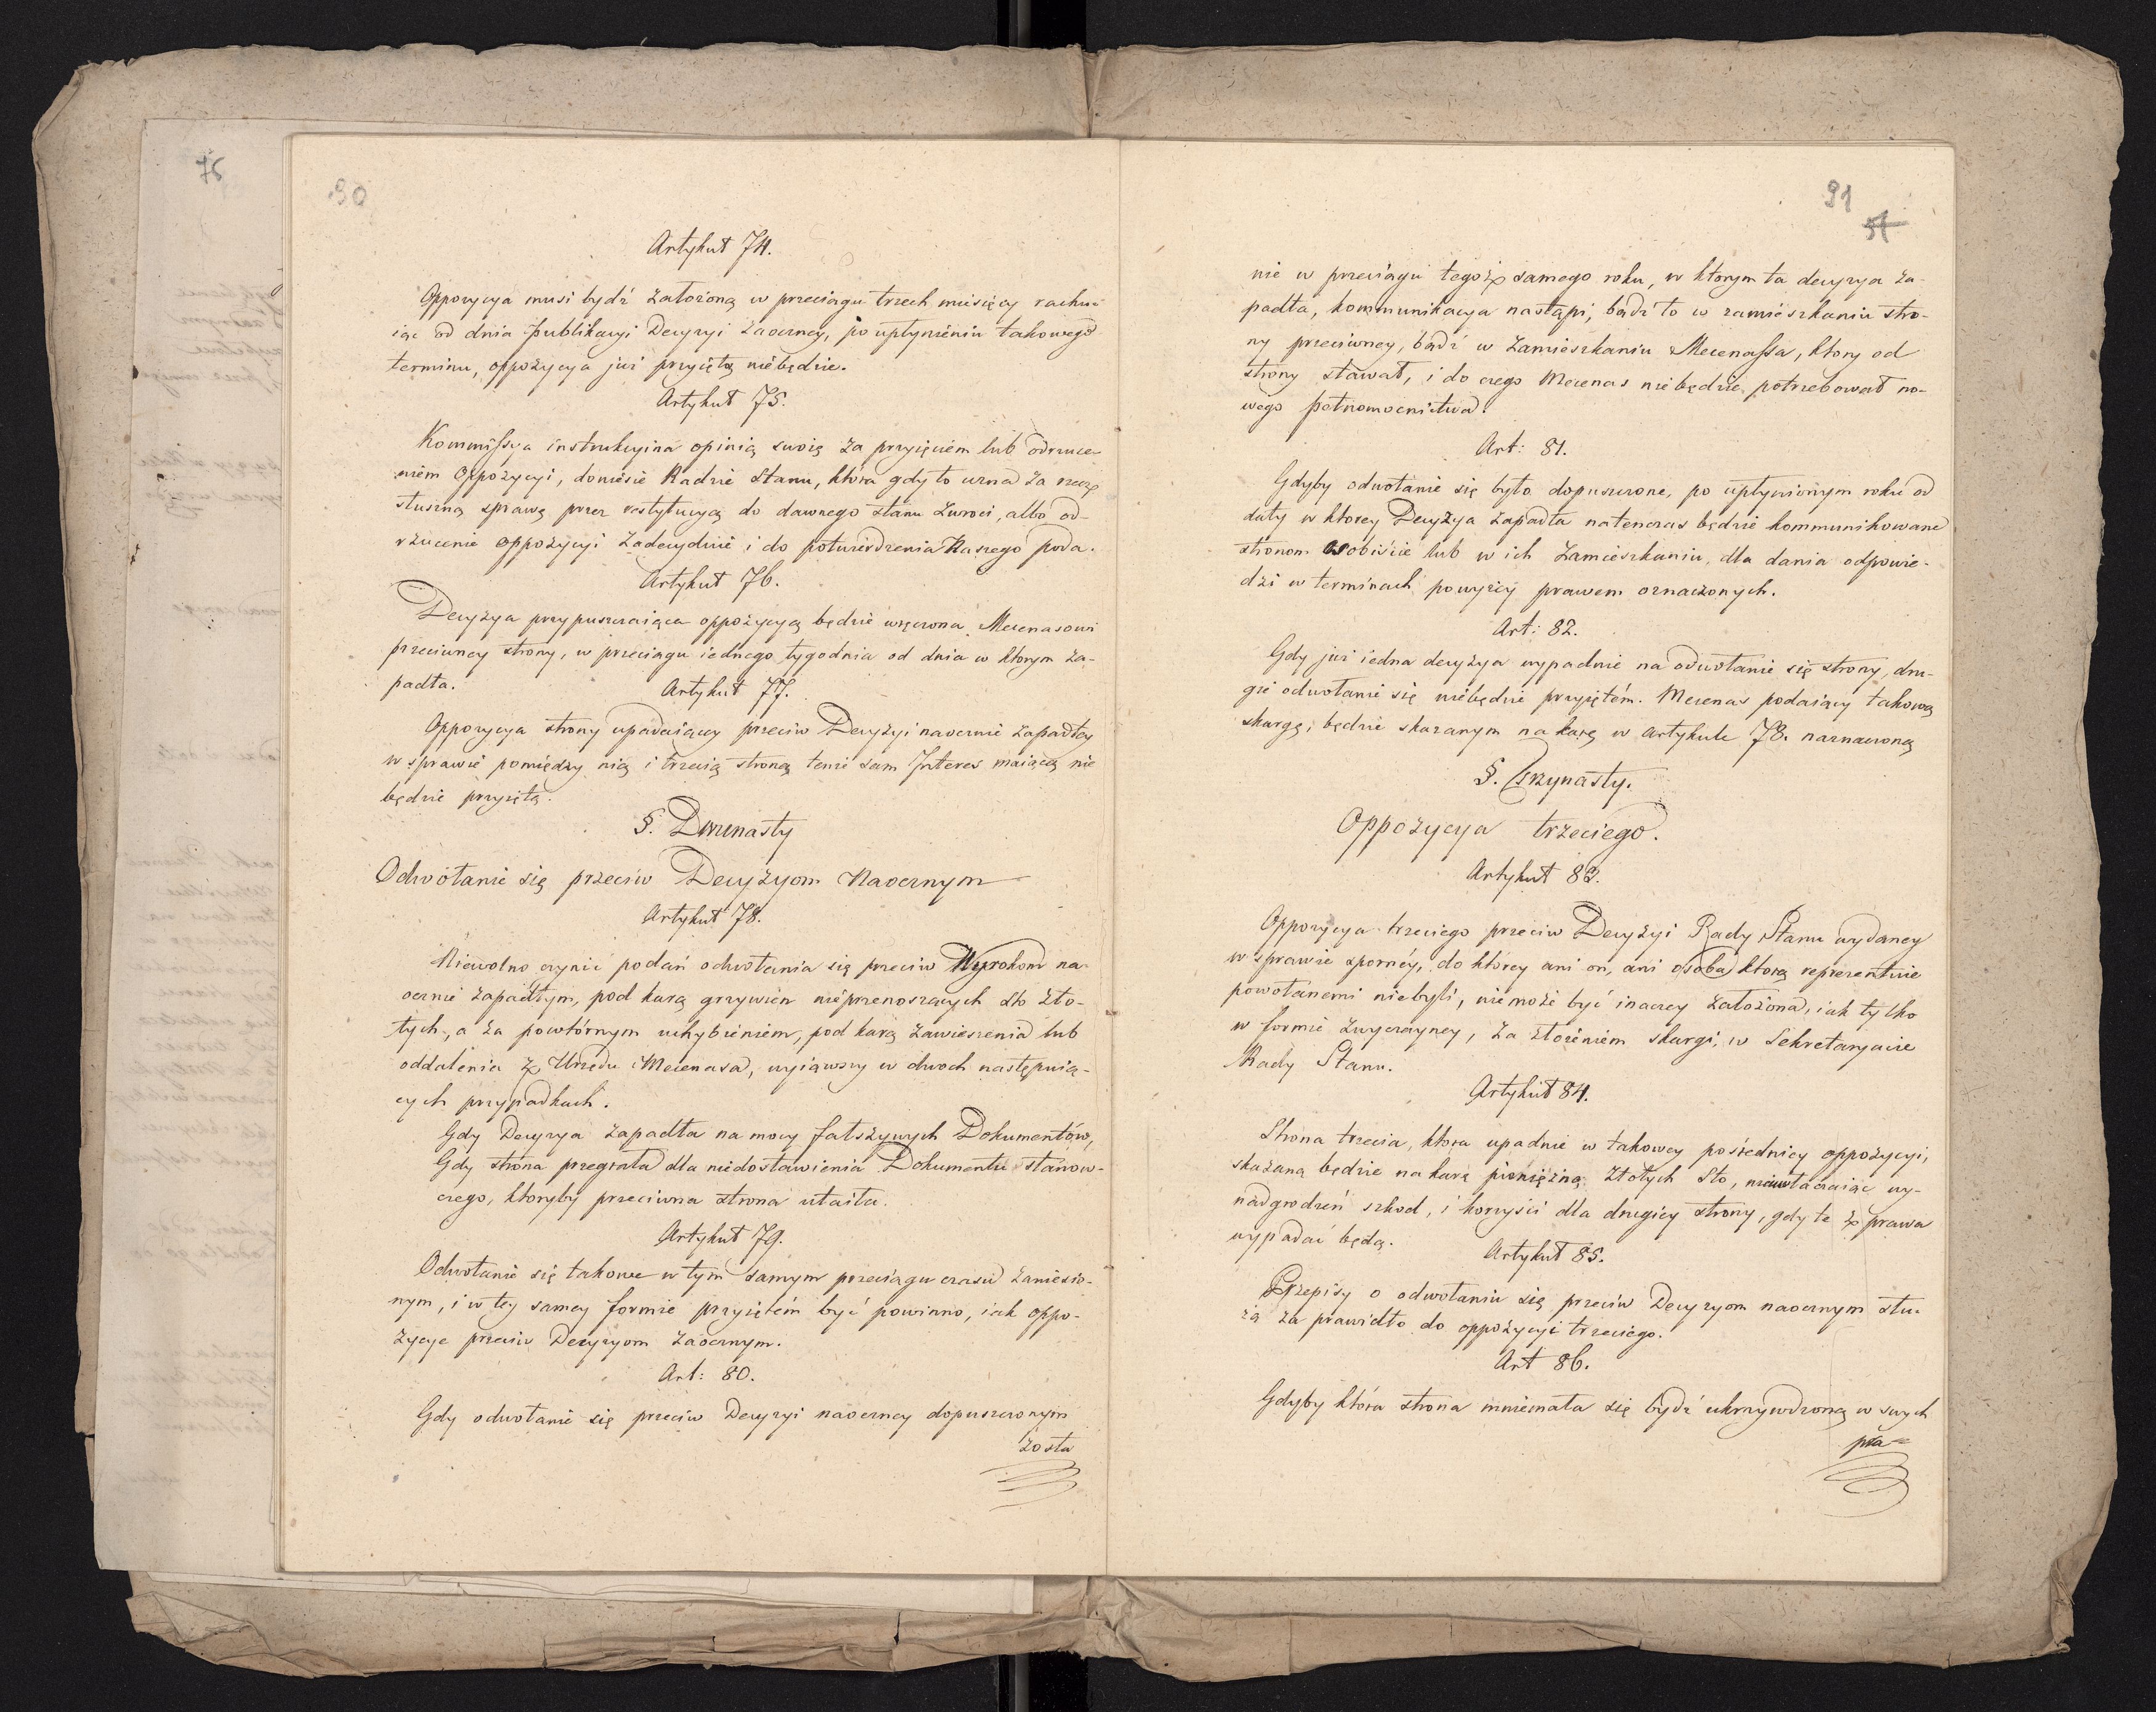 76
90
Artykuł 74.
Oppozycya musi bydź założoną w przeciągu trzech miesięcy rachu-
iąc od dnia publikacyi Decyzyi zaoczney, po upłynieniu takowego
terminu, oppozycya już przyiętą niebędzie.
Artykuł 75.
Kommissya instrukcyina opinią swoią za przyięciem lub odrzuce-
niem Oppozycyi, doniesie Radzie Stanu, która gdy to uzna za rzecz
słuszną sprawę przez restytucyą do dawnego stanu zwróci, albo od-
rzucenie oppozycyi zadecyduie i do potwierdzenia Naszego poda.
Artykuł 76.
Decyzya przypuszczaiąca oppozycyą będzie wręczona Mecenasowi
przeciwney strony, w przeciągu iednego tygodnia od dnia w którym za-
padła.
Artykuł 77.
Oppozycya strony upadaiącey przeciw Decyzyi naocznie zapadłey
w sprawie pomiędzy nią i trzecią stroną tenże sam Interes maiącą nie
będzie przyiętą.
§. Dwunasty
Odwołanie się przeciw Decyzyom Naocznym
Artykuł 78.
Niewolno czynić podań odwołania się przeciw Wyrokom na-
ocznie zapadłym, pod karą grzywien nieprzenoszących sto zło-
tych, a za powtórnym uchybieniem, pod karą zawieszenia lub
oddalenia z Urzędu Mecenasa, wyiąwszy w dwoch następuią-
cych przypadkach.
Gdy Decyzya zapadła na mocy fałszywych Dokumentów,
Gdy strona przegrała dla niedostawienia Dokumentu stanow-
czego, ktoryby przeciwna strona utaiła.
Artykuł 79.
Odwołanie się takowe w tym samym przeciągu czasu zaniesio-
nym, i w tey samey formie przyiętém być powinno, iak oppo-
zycye przeciw Decyzyom zaocznym.
Art: 80.
Gdy odwołanie się przeciw Decyzyi naoczney dopuszczonym
zosta
91
51
nie w przeciągu tegoż samego roku, w którym ta decyzya za-
padła, kommunikacya nastąpi, bądź to w zamieszkaniu stro-
ny przeciwney, bądź w zamieszkaniu Mecenassa, ktory od
strony stawał, i do czego Mecenas niebędzie potrzebował no-
wego pełnomocnictwa.
Art: 81.
Gdyby odwołanie się było dopuszczone, po upłynionym roku od
daty w ktorey Decyzya zapadła natenczas będzie kommunikowane
stronom osobiście lub w ich zamieszkaniu, dla dania odpowie-
dzi w terminach powyżey prawem oznaczonych.
Art: 82.
Gdy już iedna decyzya wypadnie na odwołanie się strony, dru-
gie odwołanie się niebędzie przyiętém. Mecenas podaiący takową
skargę, będzie skazanym na karę w artykule 78. naznaczoną
§. Trzynasty.
Oppozycya trzeciego.
Artykuł 83.
Oppozycya trzeciego przeciw Decyzyi Rady Stanu wydaney
w sprawie sporney, do którey ani on, ani osoba którą reprezentuie
powołanemi niebyli, niemoże być inaczey założona, iak tylko
w formie zwyczayney, za złożeniem skargi, w Sekretaryacie
Rady Stanu.
Artykuł 84.
Strona trzecia, ktora upadnie w takowey pośredniey oppozycyi,
skazaną będzie na karę pieniężną Złotych Sto, niewłączaiąc wy-
nadgrodzeń szkod, i korzyści dla drugiey strony, gdy te z prawa
wypadać będą.
Artykuł 85.
Przepisy o odwołaniu się przeciw Decyzyom naocznym słu-
żą za prawidło do oppozycyi trzeciego.
Art 86.
Gdyby która strona mniemała się bydź ukrzywdzoną w swych
pra-